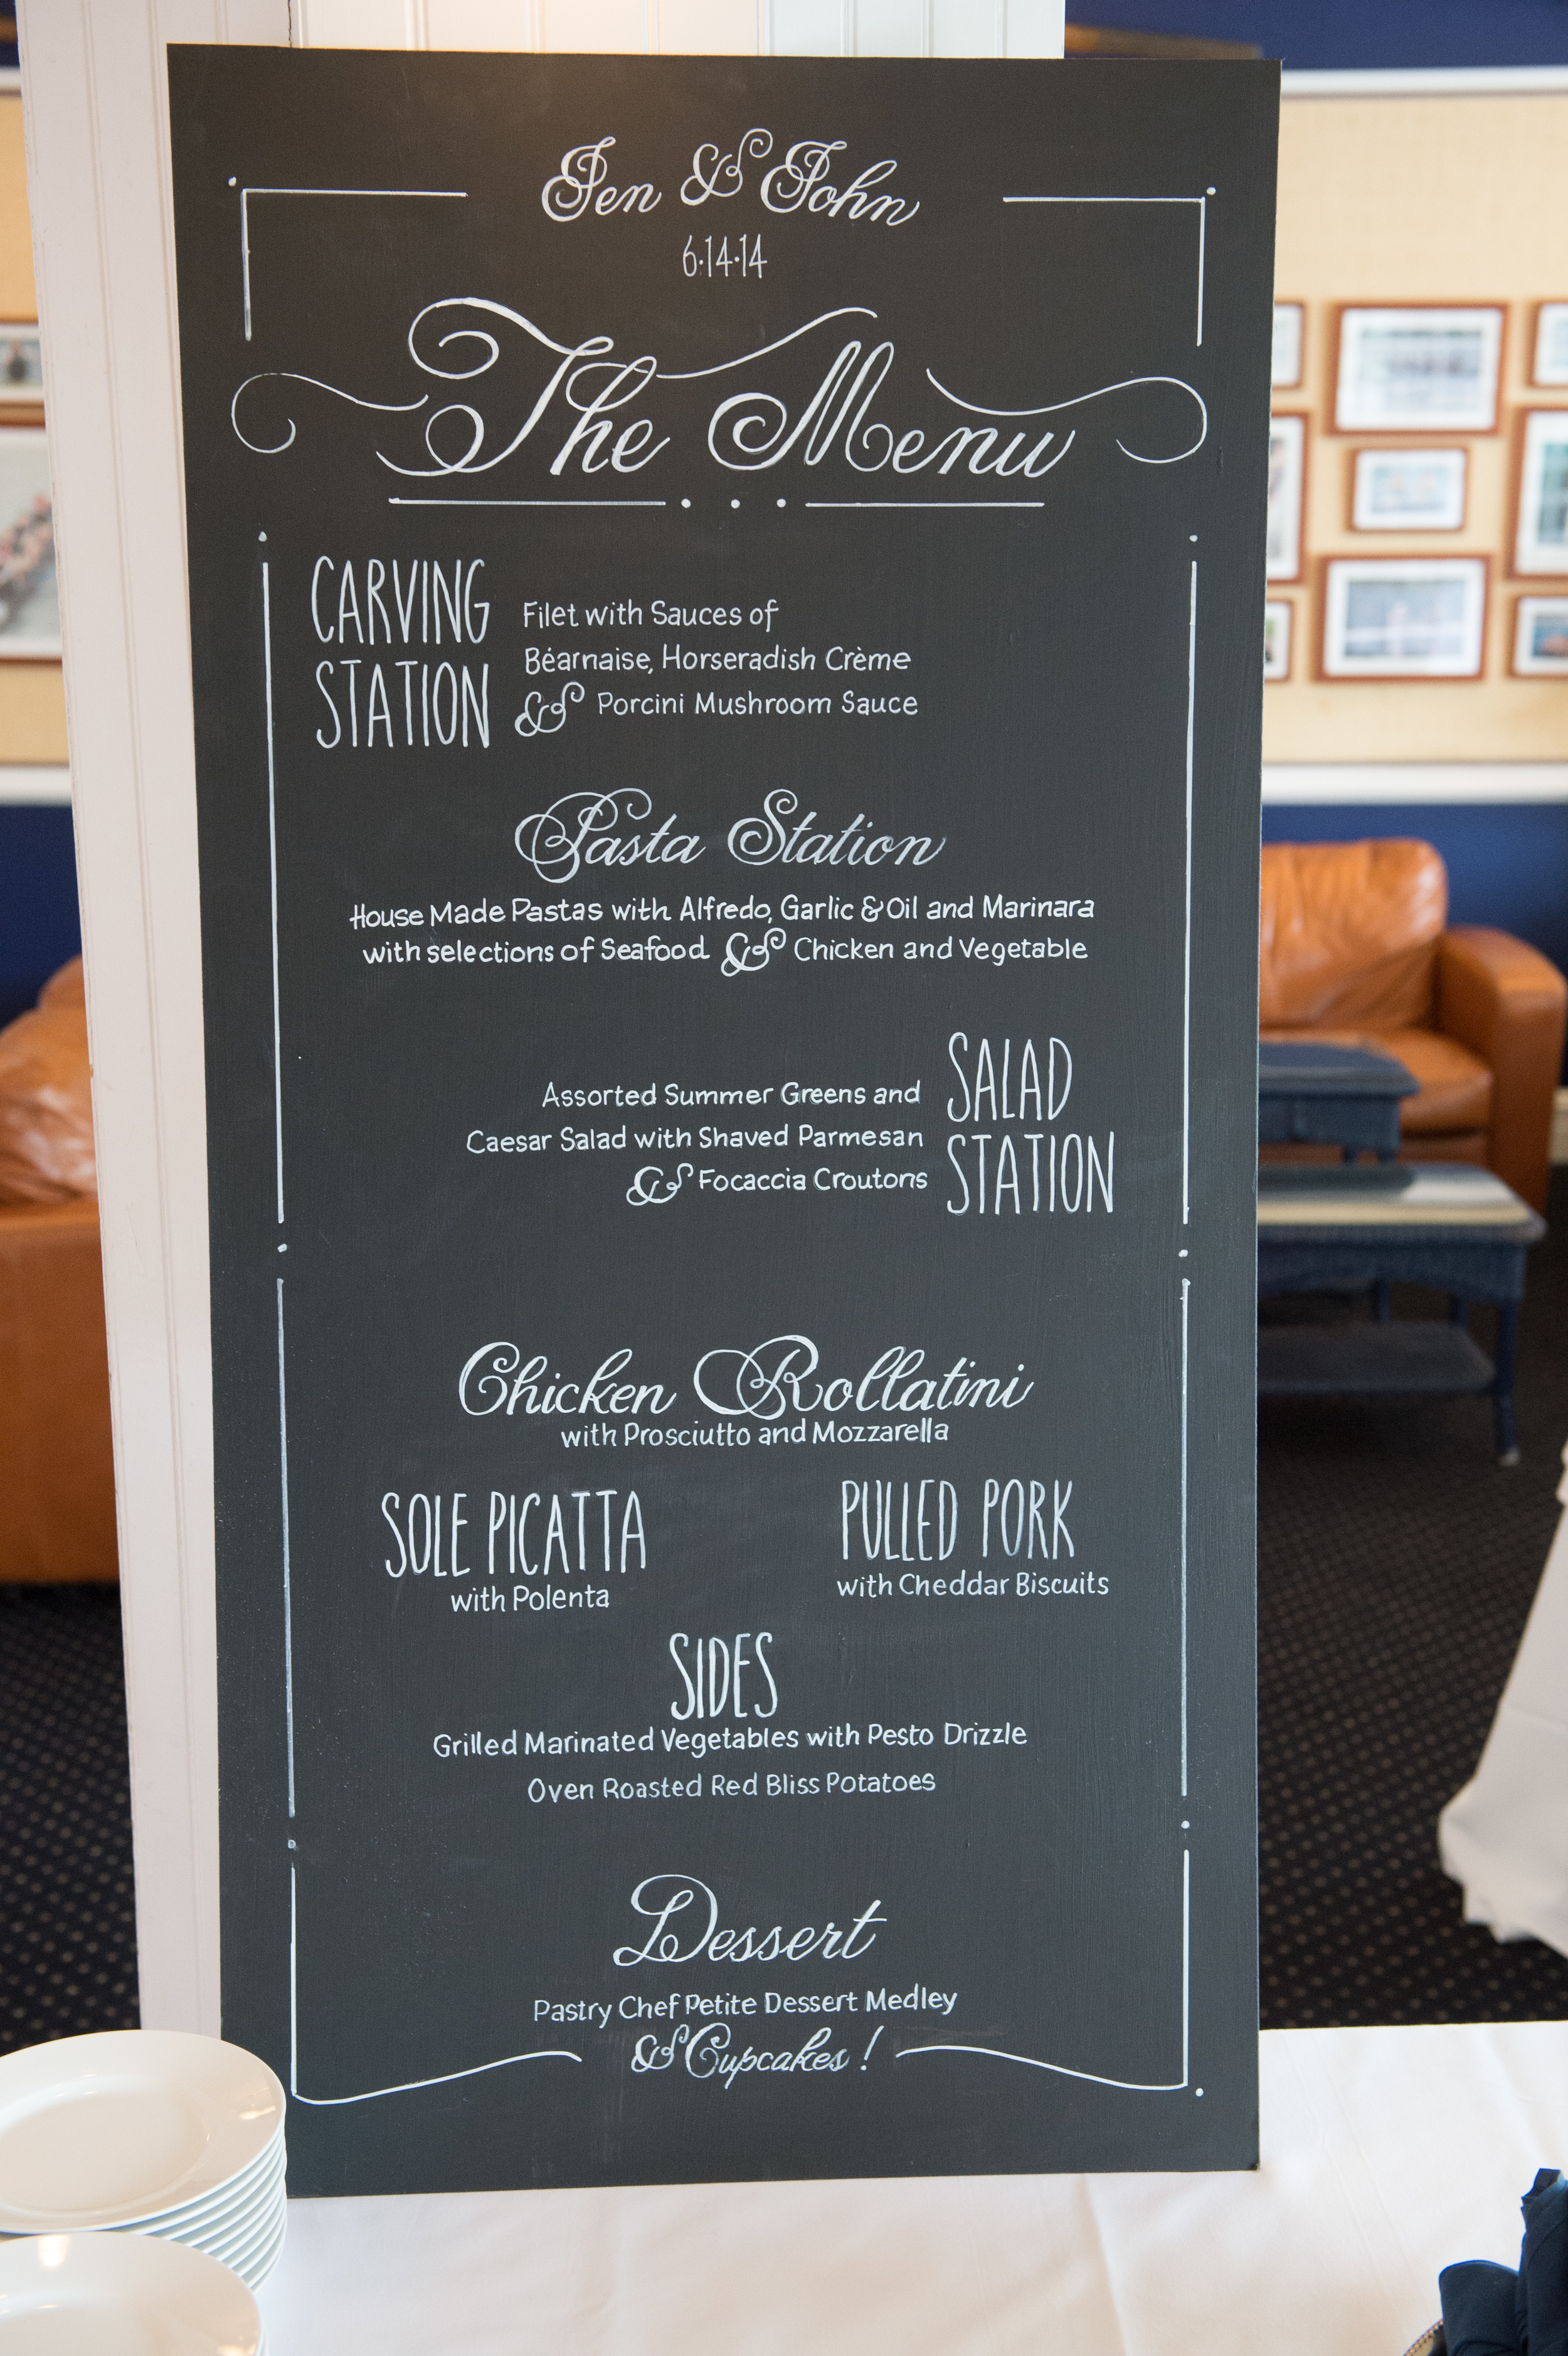 Jen & John
6·14·14
The Menu
CARVING
STATION
Filet with Sauces of
Béarnaise, Horseradish Crème
& Porcini Mushroom Sauce
Pasta Station
House Made Pastas with Alfredo, Garlic & Oil and Marinara
with selections of Seafood & Chicken and Vegetable
Assorted Summer Greens and
Caesar Salad with Shaved Parmesan
& Focaccia Croutons
SALAD
STATION
Chicken Rollatini
with Prosciutto and Mozzarella
SOLE PICATTA
with Polenta
PULLED PORK
with Cheddar Biscuits
SIDES
Grilled Marinated Vegetables with Pesto Drizzle
Oven Roasted Red Bliss Potatoes
Dessert
Pastry Chef Petite Dessert Medley
& Cupcakes!